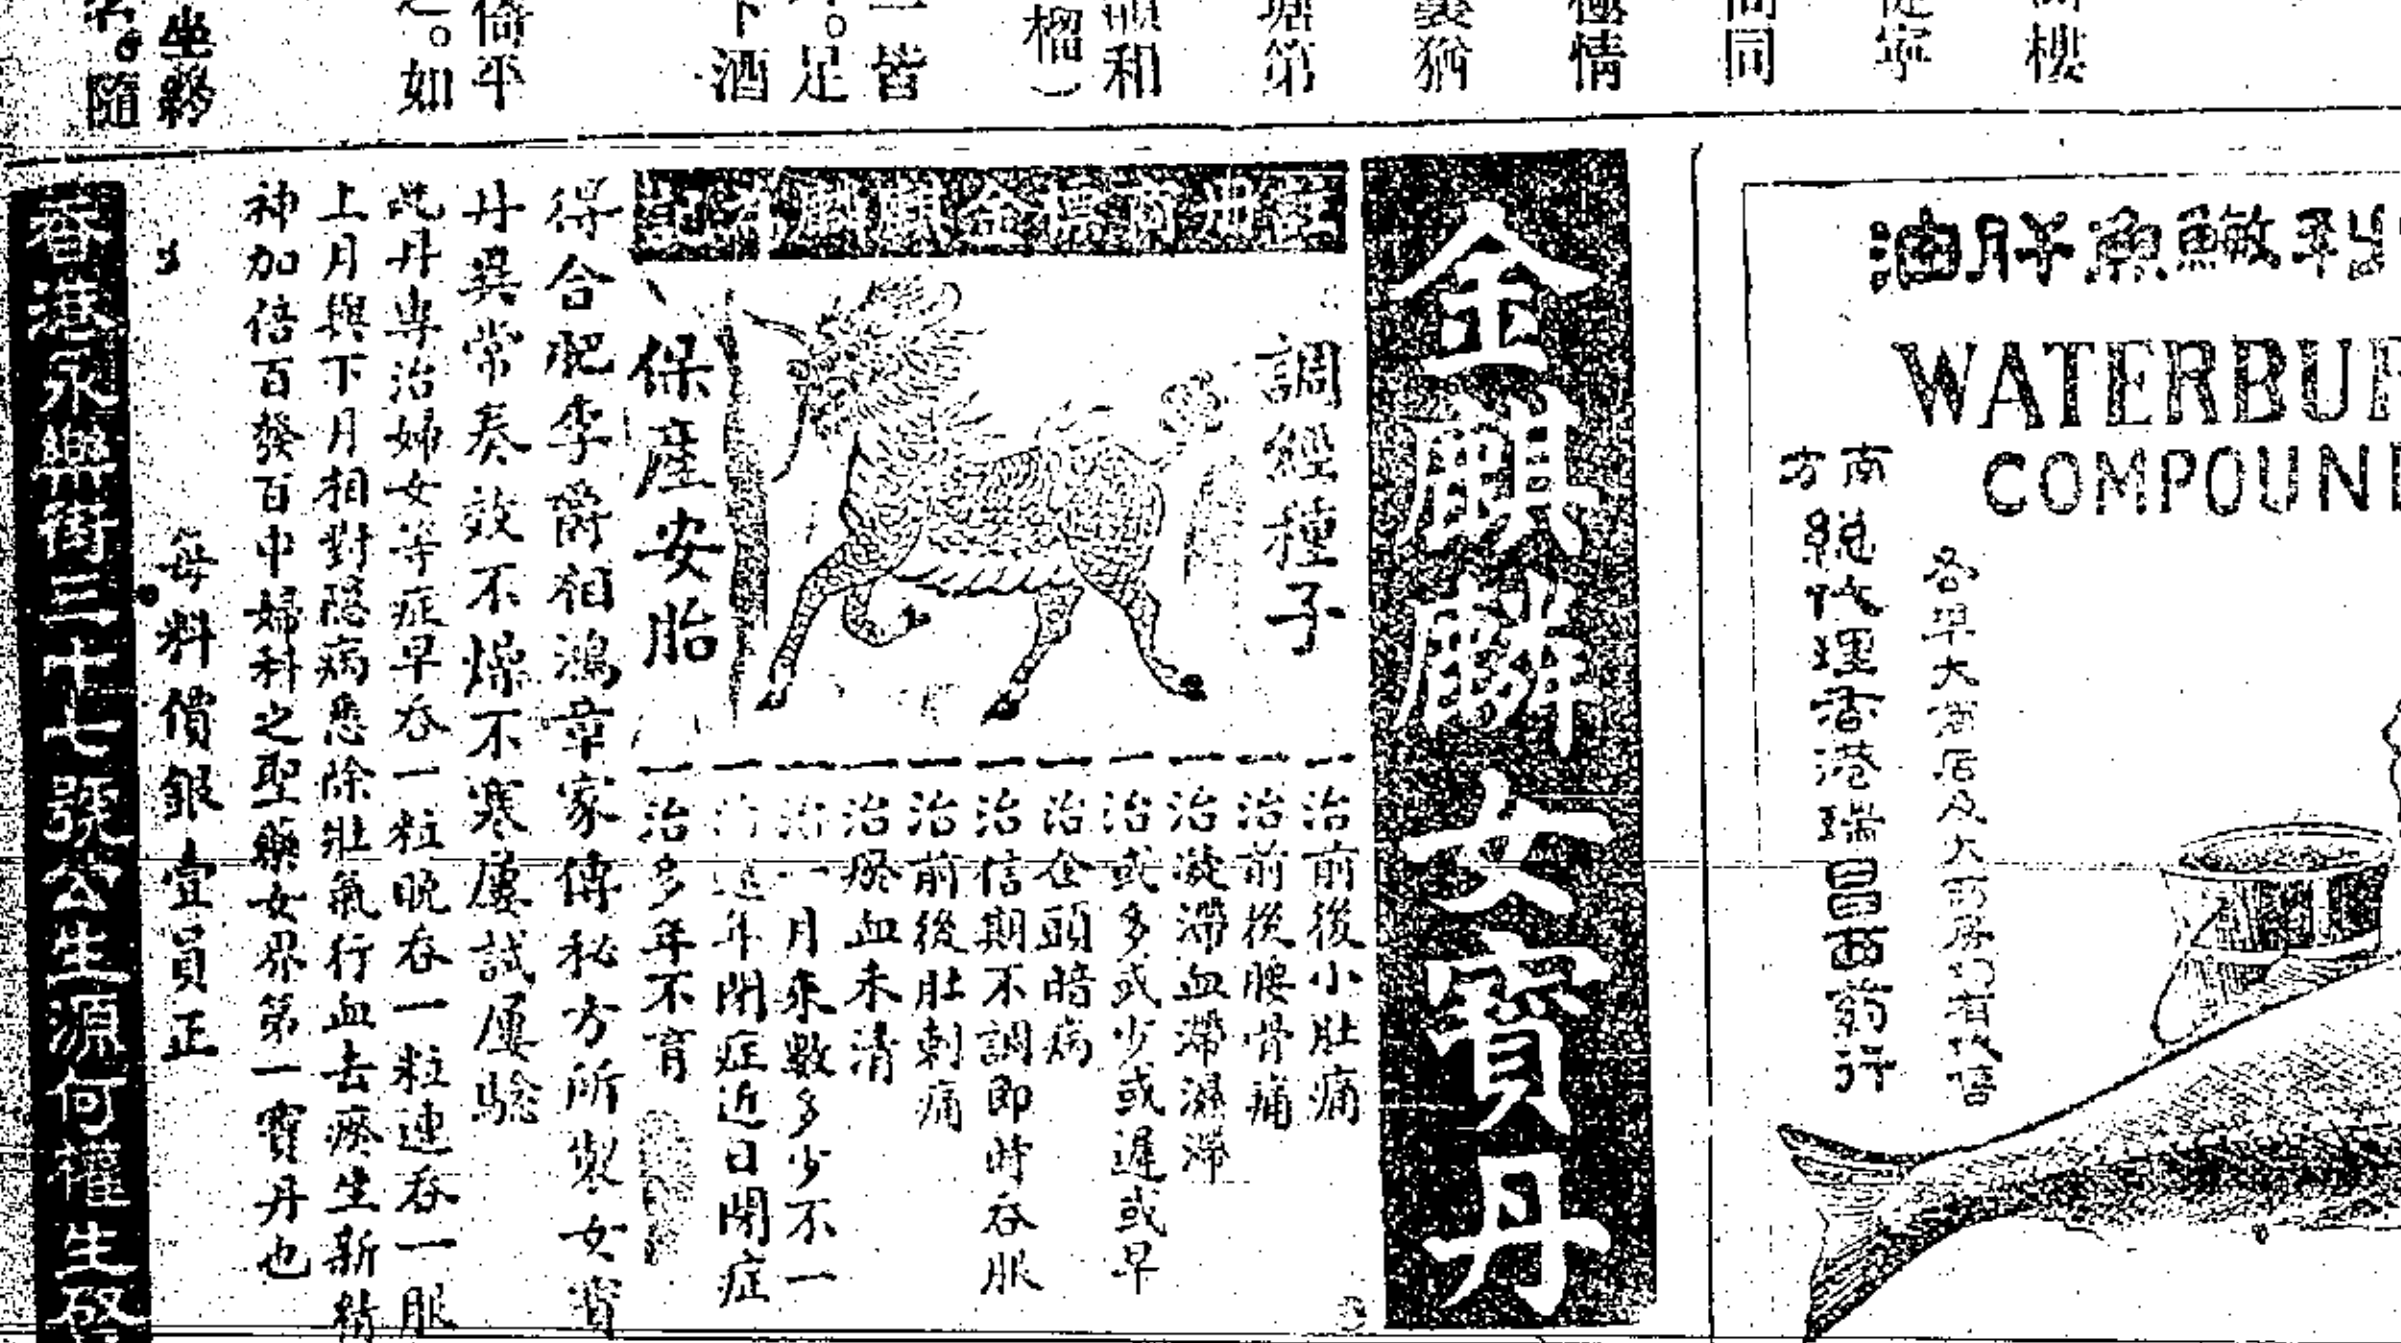 樓
寧
同
情
猶
第
和
榴）
皆
。足
下酒
倚平
。如
坐終
。隨
油肝魚鰵
WATERBU
COMPOUN
南方
總代理香港瑞昌西葯行
各埠大商店及大葯房均有代售
金麒麟女寶丹
註冊商標金麒麟為記
調經種子
保產安胎
一治前後小肚痛
一治前後腰骨痛
一治凝滯血滯濕滯
一治或多或少或遲或早
一治企頭暗病
一治信期不調即時吞服
一治前後肚刺痛
一治瘀血未清
一治一月來數多少不一
一治遠年閉症近日閉症
一治多年不育
得合肥李爵相鴻章家傳秘方所製女寶
丹異常奏效不燥不寒屢試屢驗
此丹專治婦女等症早吞一粒晚吞一粒連吞一服
上月與下月相對隱病悉除壯氣行血去瘀生新精
神加倍百發百中婦科之聖藥女界第一寶丹也
每料價銀壹員正
香港永樂街三十七號公生源何權生發